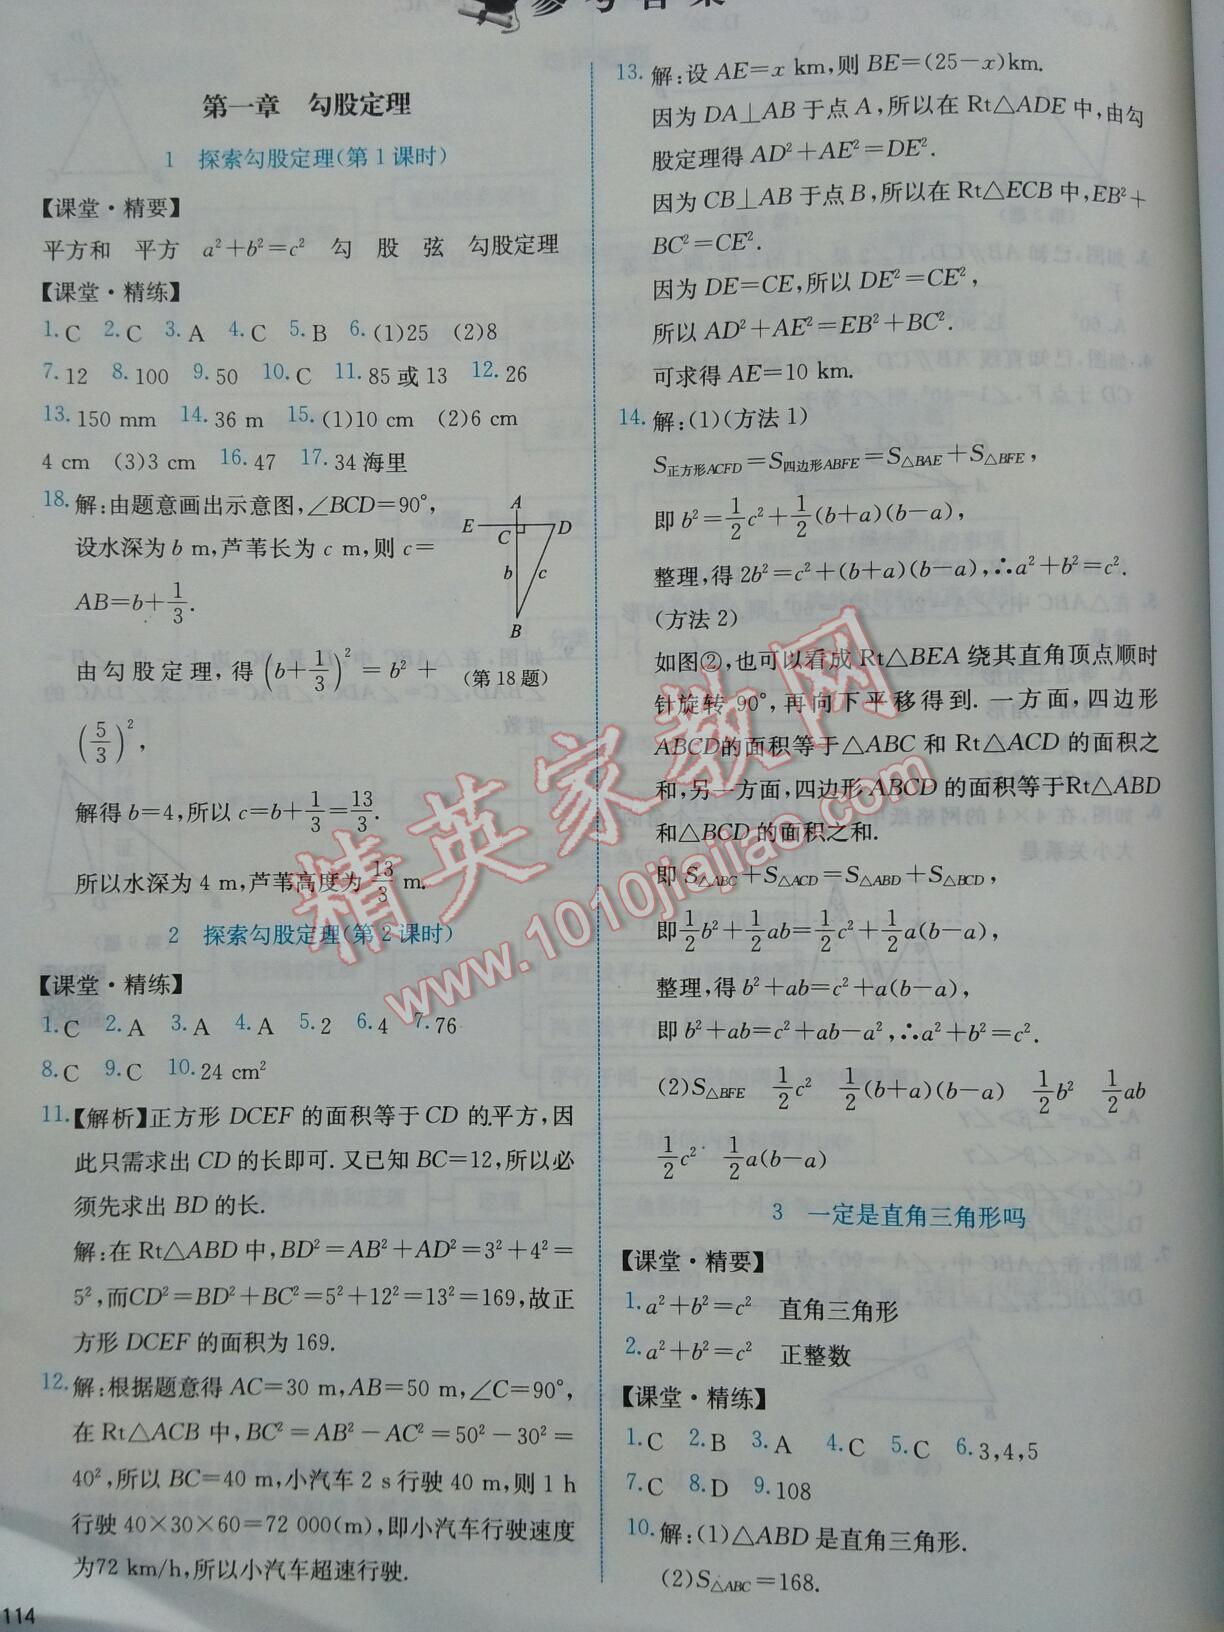 参考答案
第一章 勾股定理
1 探索勾股定理(第1课时)
【课堂·精要】
平方和 平方 a²+b²=c² 勾 股 弦 勾股定理
【课堂·精练】
1.C 2.C 3.A 4.C 5.B 6.(1)25 (2)8
7.12 8.100 9.50 10.C 11.85或13 12.26
13.150 mm 14.36 m 15.(1)10 cm (2)6 cm
4 cm (3)3 cm 16.47 17.34海里
18.解:由题意画出示意图,∠BCD=90°,
设水深为b m,芦苇长为c m,则c=
AB=b+1/3.
由勾股定理,得(b+1/3)²=b²+
(5/3)²,
解得b=4,所以c=b+1/3=13/3.
所以水深为4 m,芦苇高度为13/3 m.
A
E C D
b c
B
(第18题)
2 探索勾股定理(第2课时)
【课堂·精练】
1.C 2.A 3.A 4.A 5.2 6.4 7.76
8.C 9.C 10.24 cm²
11.【解析】正方形DCEF的面积等于CD的平方,因
此只需求出CD的长即可.又已知BC=12,所以必
须先求出BD的长.
解:在Rt△ABD中,BD²=AB²+AD²=3²+4²=
5²,而CD²=BD²+BC²=5²+12²=13²=169,故正
方形DCEF的面积为169.
12.解:根据题意得AC=30 m,AB=50 m,∠C=90°,
在Rt△ACB中,BC²=AB²-AC²=50²-30²=
40²,所以BC=40 m,小汽车2 s行驶40 m,则1 h
行驶40×30×60=72 000(m),即小汽车行驶速度
为72 km/h,所以小汽车超速行驶.
114
13.解:设AE=x km,则BE=(25-x)km.
因为DA⊥AB于点A,所以在Rt△ADE中,由勾
股定理得AD²+AE²=DE².
因为CB⊥AB于点B,所以在Rt△ECB中,EB²+
BC²=CE².
因为DE=CE,所以DE²=CE²,
所以AD²+AE²=EB²+BC².
可求得AE=10 km.
14.解:(1)(方法1)
S正方形ACFD=S四边形ABFE=S△BAE+S△BFE,
即b²=1/2c²+1/2(b+a)(b-a),
整理,得2b²=c²+(b+a)(b-a),∴a²+b²=c².
(方法2)
如图②,也可以看成Rt△BEA绕其直角顶点顺时
针旋转90°,再向下平移得到.一方面,四边形
ABCD的面积等于△ABC和Rt△ACD的面积之
和,另一方面,四边形ABCD的面积等于Rt△ABD
和△BCD的面积之和.
即S△ABC+S△ACD=S△ABD+S△BCD,
即1/2b²+1/2ab=1/2c²+1/2a(b-a),
整理,得b²+ab=c²+a(b-a),
即b²+ab=c²+ab-a²,∴a²+b²=c².
(2)S△BFE 1/2c² 1/2(b+a)(b-a) 1/2b² 1/2ab
1/2c² 1/2a(b-a)
3 一定是直角三角形吗
【课堂·精要】
1.a²+b²=c² 直角三角形
2.a²+b²=c² 正整数
【课堂·精练】
1.C 2.B 3.A 4.C 5.C 6.3,4,5
7.C 8.D 9.108
10.解:(1)△ABD是直角三角形.
(2)S△ABC=168.
精英家教网
www.1010jiajiao.com